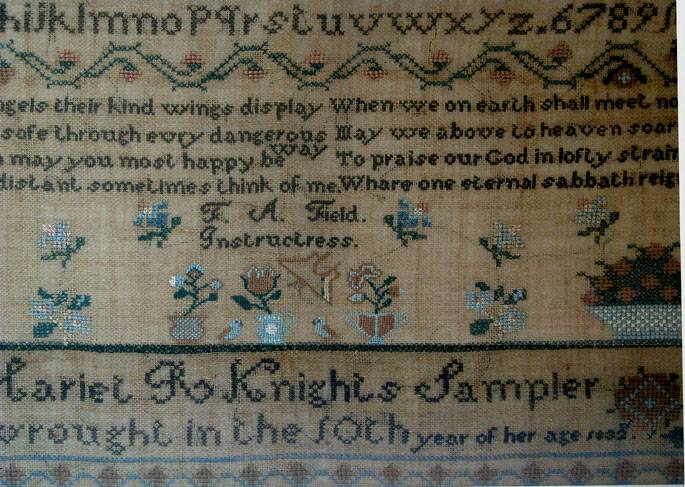 hiJklmnopqrstuvwxyz.6789
ngels their kind wings display
safe through evry dangerous way
may you most happy be
distant sometimes think of me.
When we on earth shall meet no
May we above to heaven soar
To praise our God in lofty strain
Whare one eternal sabbath reig
F. A. Field.
Instructress.
Hariet R Knights Sampler
wrought in the 10th year of her age